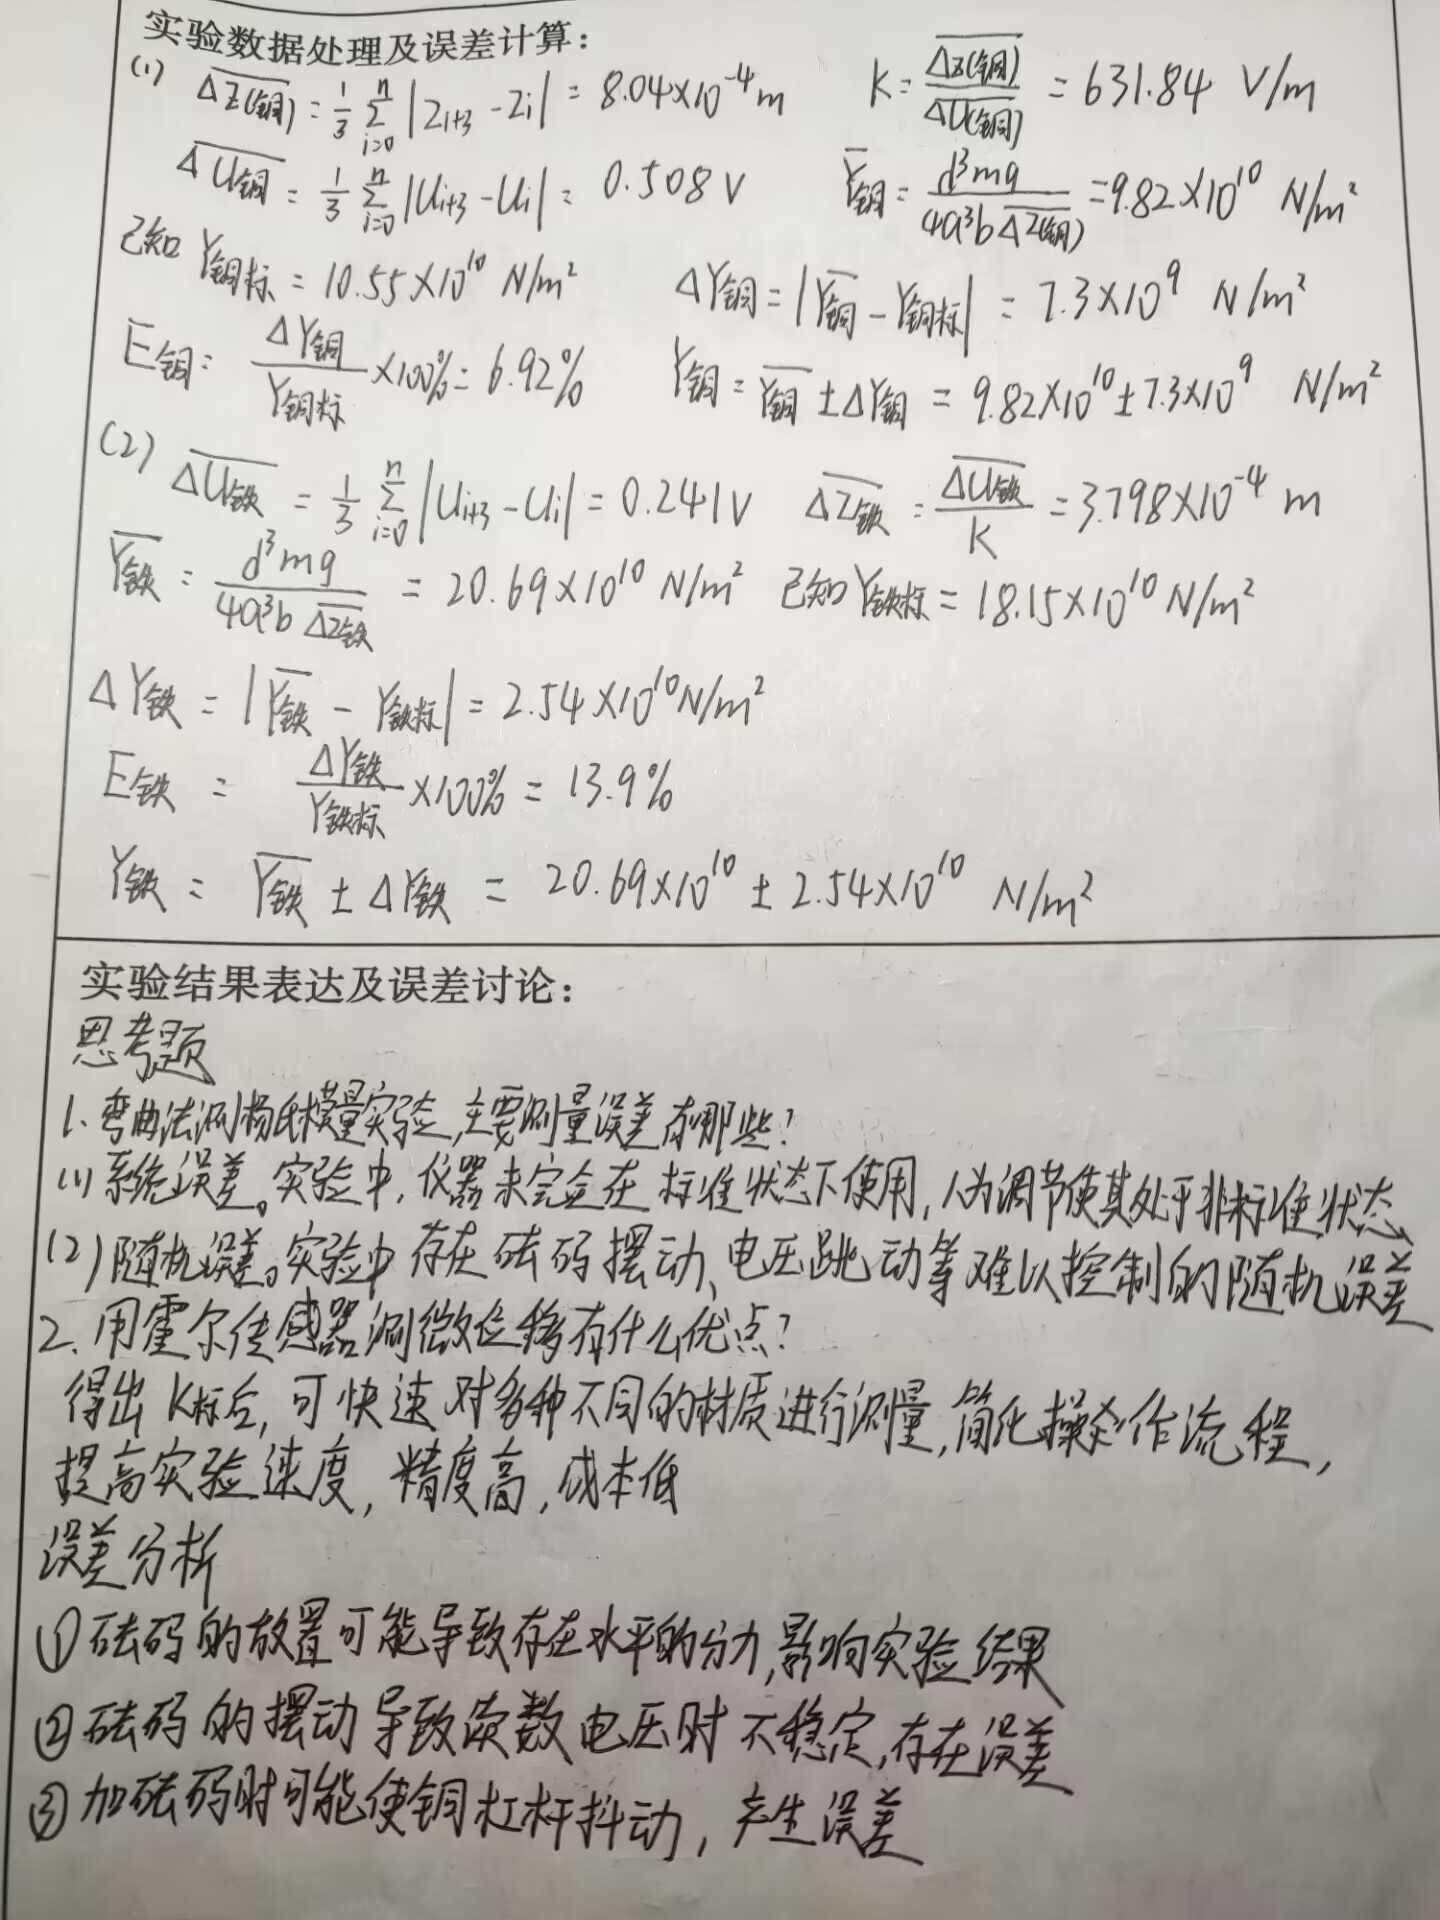 实验数据处理及误差计算：
(1) \overline{ΔZ(铜)} = \frac{1}{3} \sum_{i=0}^{n} |Z_{i+3} - Z_i| = 8.04×10^{-4} m K = \frac{\overline{ΔZ(铜)}}{\overline{ΔU(铜)}} = 631.84 V/m
\overline{ΔU铜} = \frac{1}{3} \sum_{i=0}^{n} |U_{i+3} - U_i| = 0.508 V \overline{Y}铜 = \frac{d^3mg}{4a^3b\overline{ΔZ(铜)}} = 9.82×10^{10} N/m^2
已知 Y铜标 = 10.55×10^{10} N/m^2 ΔY铜 = |\overline{Y铜} - Y铜标| = 7.3×10^9 N/m^2
E铜 = \frac{ΔY铜}{Y铜标} ×100% = 6.92% Y铜 = \overline{Y铜} ± ΔY铜 = 9.82×10^{10} ± 7.3×10^9 N/m^2
(2) \overline{ΔU铁} = \frac{1}{3} \sum_{i=0}^{n} |U_{i+3} - U_i| = 0.241V \overline{ΔZ铁} = \frac{\overline{ΔU铁}}{K} = 3.798×10^{-4} m
\overline{Y铁} = \frac{d^3mg}{4a^3b\overline{ΔZ铁}} = 20.69×10^{10} N/m^2 已知 Y铁标 = 18.15×10^{10} N/m^2
ΔY铁 = |\overline{Y铁} - Y铁标| = 2.54×10^{10} N/m^2
E铁 = \frac{ΔY铁}{Y铁标} ×100% = 13.9%
Y铁 = \overline{Y铁} ± ΔY铁 = 20.69×10^{10} ± 2.54×10^{10} N/m^2
实验结果表达及误差讨论：
思考题
1. 弯曲法测杨氏模量实验,主要测量误差有哪些?
(1) 系统误差。实验中,仪器未完全在标准状态下使用,人为调节使其处于非标准状态、
(2) 随机误差。实验中存在砝码摆动、电压跳动等难以控制的随机误差
2. 用霍尔传感器测微位移有什么优点?
得出K标后,可快速对多种不同的材质进行测量,简化操作流程,
提高实验速度,精度高,成本低
误差分析
①砝码的放置可能导致存在水平的分力,影响实验结果
②砝码的摆动导致读数电压时不稳定,存在误差
③加砝码时可能使铜杠杆抖动,产生误差